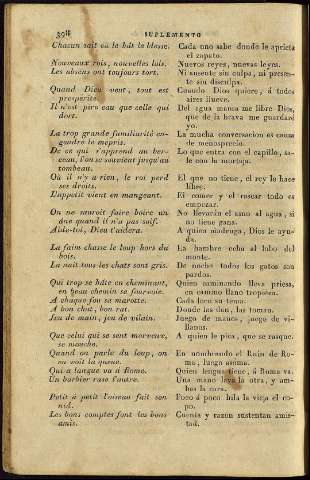 398
SUPLEMENTO
Chacun sait où le bât le blesse.
Nouveaux rois, nouvelles lois.
Les absens ont toujours tort.
Quand Dieu veut, tout est
prospérité.
Il n'est pire eau que celle qui
dort.
La trop grande familiarité en-
gendre le mépris.
De ce qui s'apprend au ber-
ceau, l'on se souvient jusqu'au
tombeau.
Où il n'y a rien, le roi perd
ses droits.
L'appetit vient en mangeant.
On ne sauroit faire boire un
âne quand il n'a pas soif.
Aide-toi, Dieu t'aidera.
La faim chasse le loup hors du
bois.
La nuit tous les chats sont gris.
Qui trop se hâte en cheminant,
en beau chemin se fourvoie.
A chaque fou sa marotte.
A bon chat, bon rat.
Jeu de main, jeu de vilain.
Que celui qui se sent morveux,
se mouche.
Quand on parle du loup, on
en voit la queue.
Qui a langue va à Rome.
Un barbier rase l'autre.
Petit à petit l'oiseau fait son
nid.
Les bons comptes font les bons
amis.
Cada uno sabe donde le aprieta
el zapato.
Nuevos reyes, nuevas leyes.
Ni ausente sin culpa, ni presen-
te sin disculpa.
Cuando Dios quiere, á todos
aires llueve.
Del agua mansa me libre Dios,
que de la brava me guardaré
yo.
La mucha conversacion es causa
de menosprecio.
Lo que entra con el capillo, sa-
le con la mortaja.
El que no tiene, el rey lo hace
libre.
El comer y el rascar todo es
empezar.
No llevarán el asno al agua, si
no tiene gana.
A quien madruga, Dios le ayu-
da.
La hambre echa al lobo del
monte.
De noche todos los gatos son
pardos.
Quien caminando lleva priesa,
en camino llano tropieza.
Cada loco su tema.
Donde las dan, las toman.
Juego de manos, juego de vi-
llanos.
A quien le pica, que se rasque.
En nombrando el Ruin de Ro-
ma, luego asoma.
Quien lengua tiene, á Roma va.
Una mano lava la otra, y am-
bas la cara.
Poco á poco hila la vieja el co-
po.
Cuenta y razon sustentan amis-
tad.